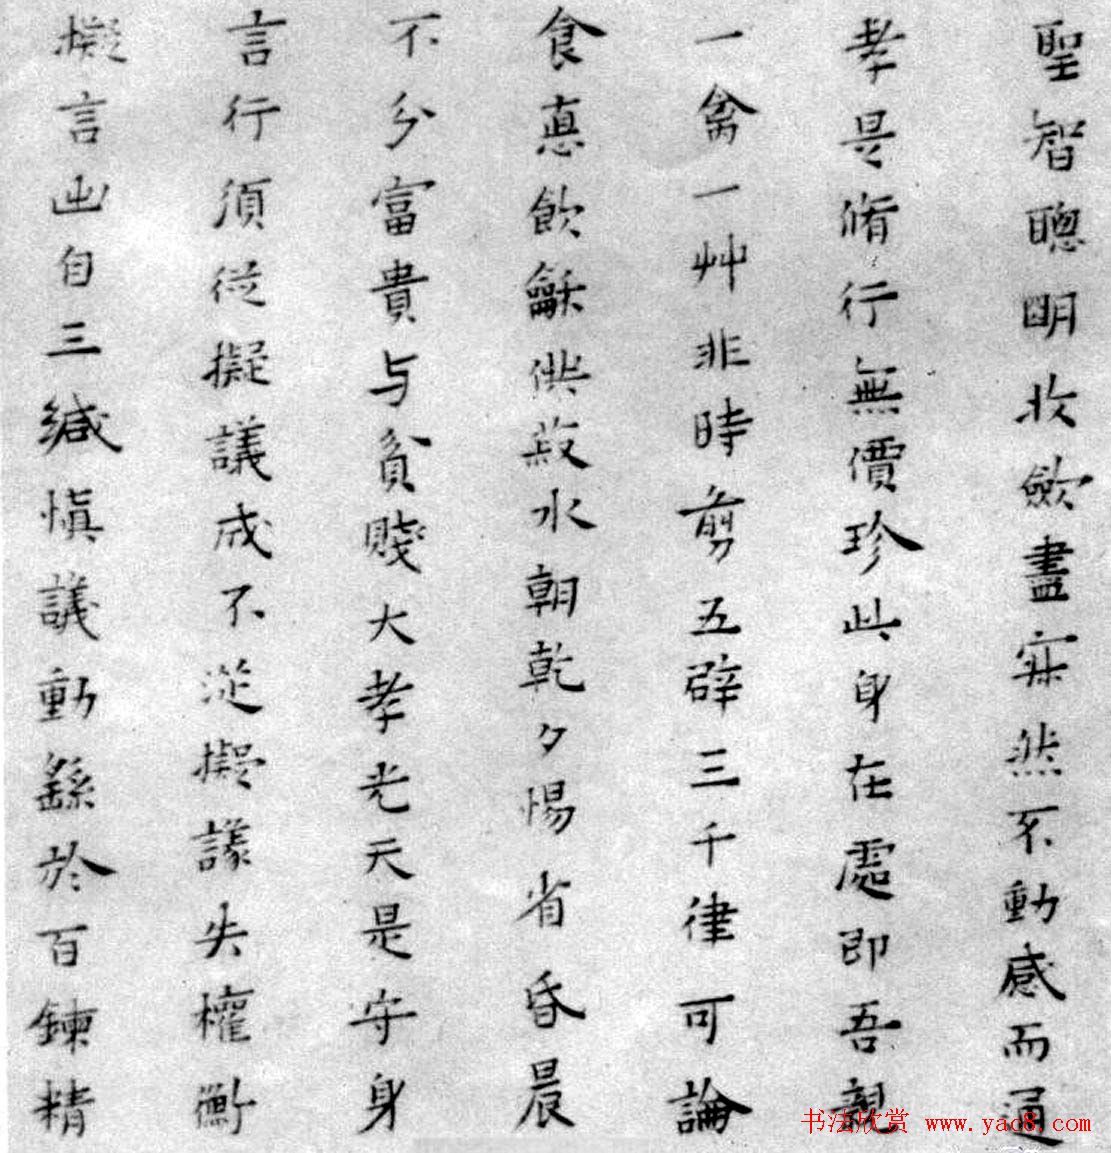 聖智聰明收歛盡寂然不動感而通
孝是脩行無價珍此身在處即吾親
一禽一艸非時剪五辟三千律可論
食惪飲龢供菽水朝乾夕惕省昏晨
不分富貴与貧賤大孝光天是守身
言行須從擬議成不從擬議失權衡
擬言出自三緘慎議動繇於百鍊精
书法欣赏 www.yac8.com